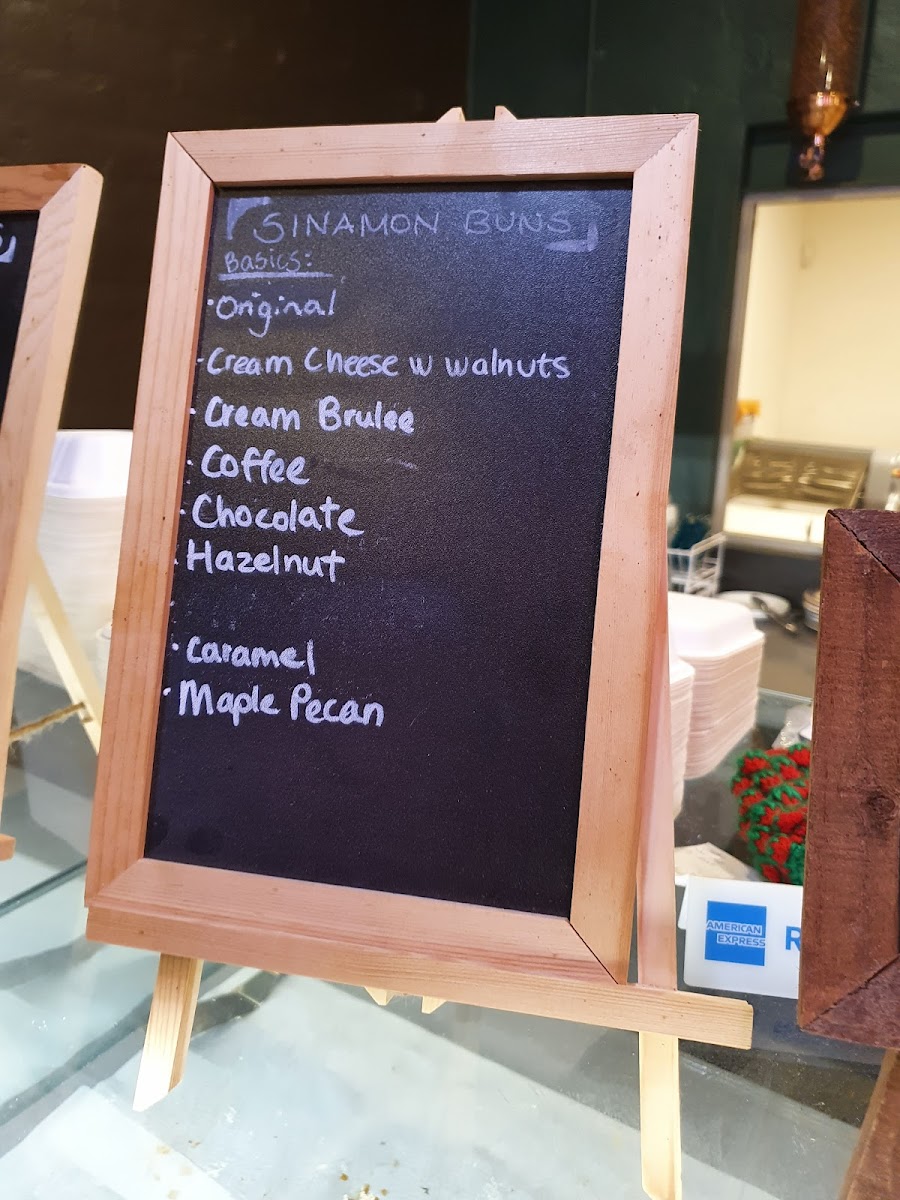 SINAMON BUNS
Basics:
·Original
·Cream Cheese w walnuts
·Cream Brulee
·Coffee
·Chocolate
·Hazelnut
·Caramel
·Maple Pecan
AMERICAN
EXPRESS